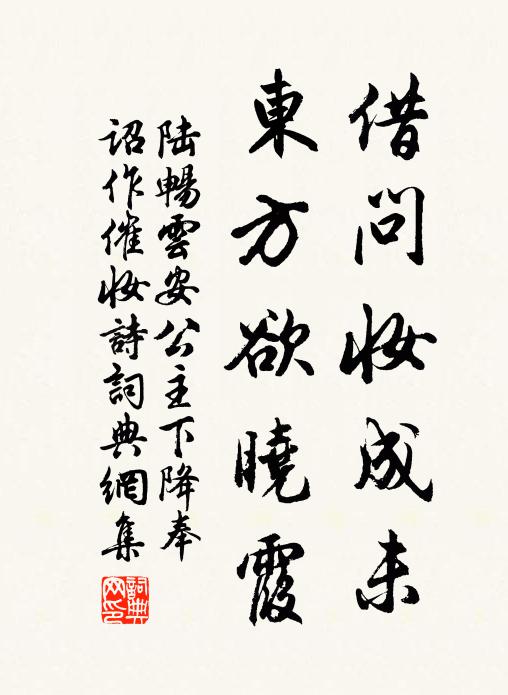 借问妆成未
東方欲曉霞
陆暢雲安公主下降奉
詔作催妆詩詞典網集
詞典
网印